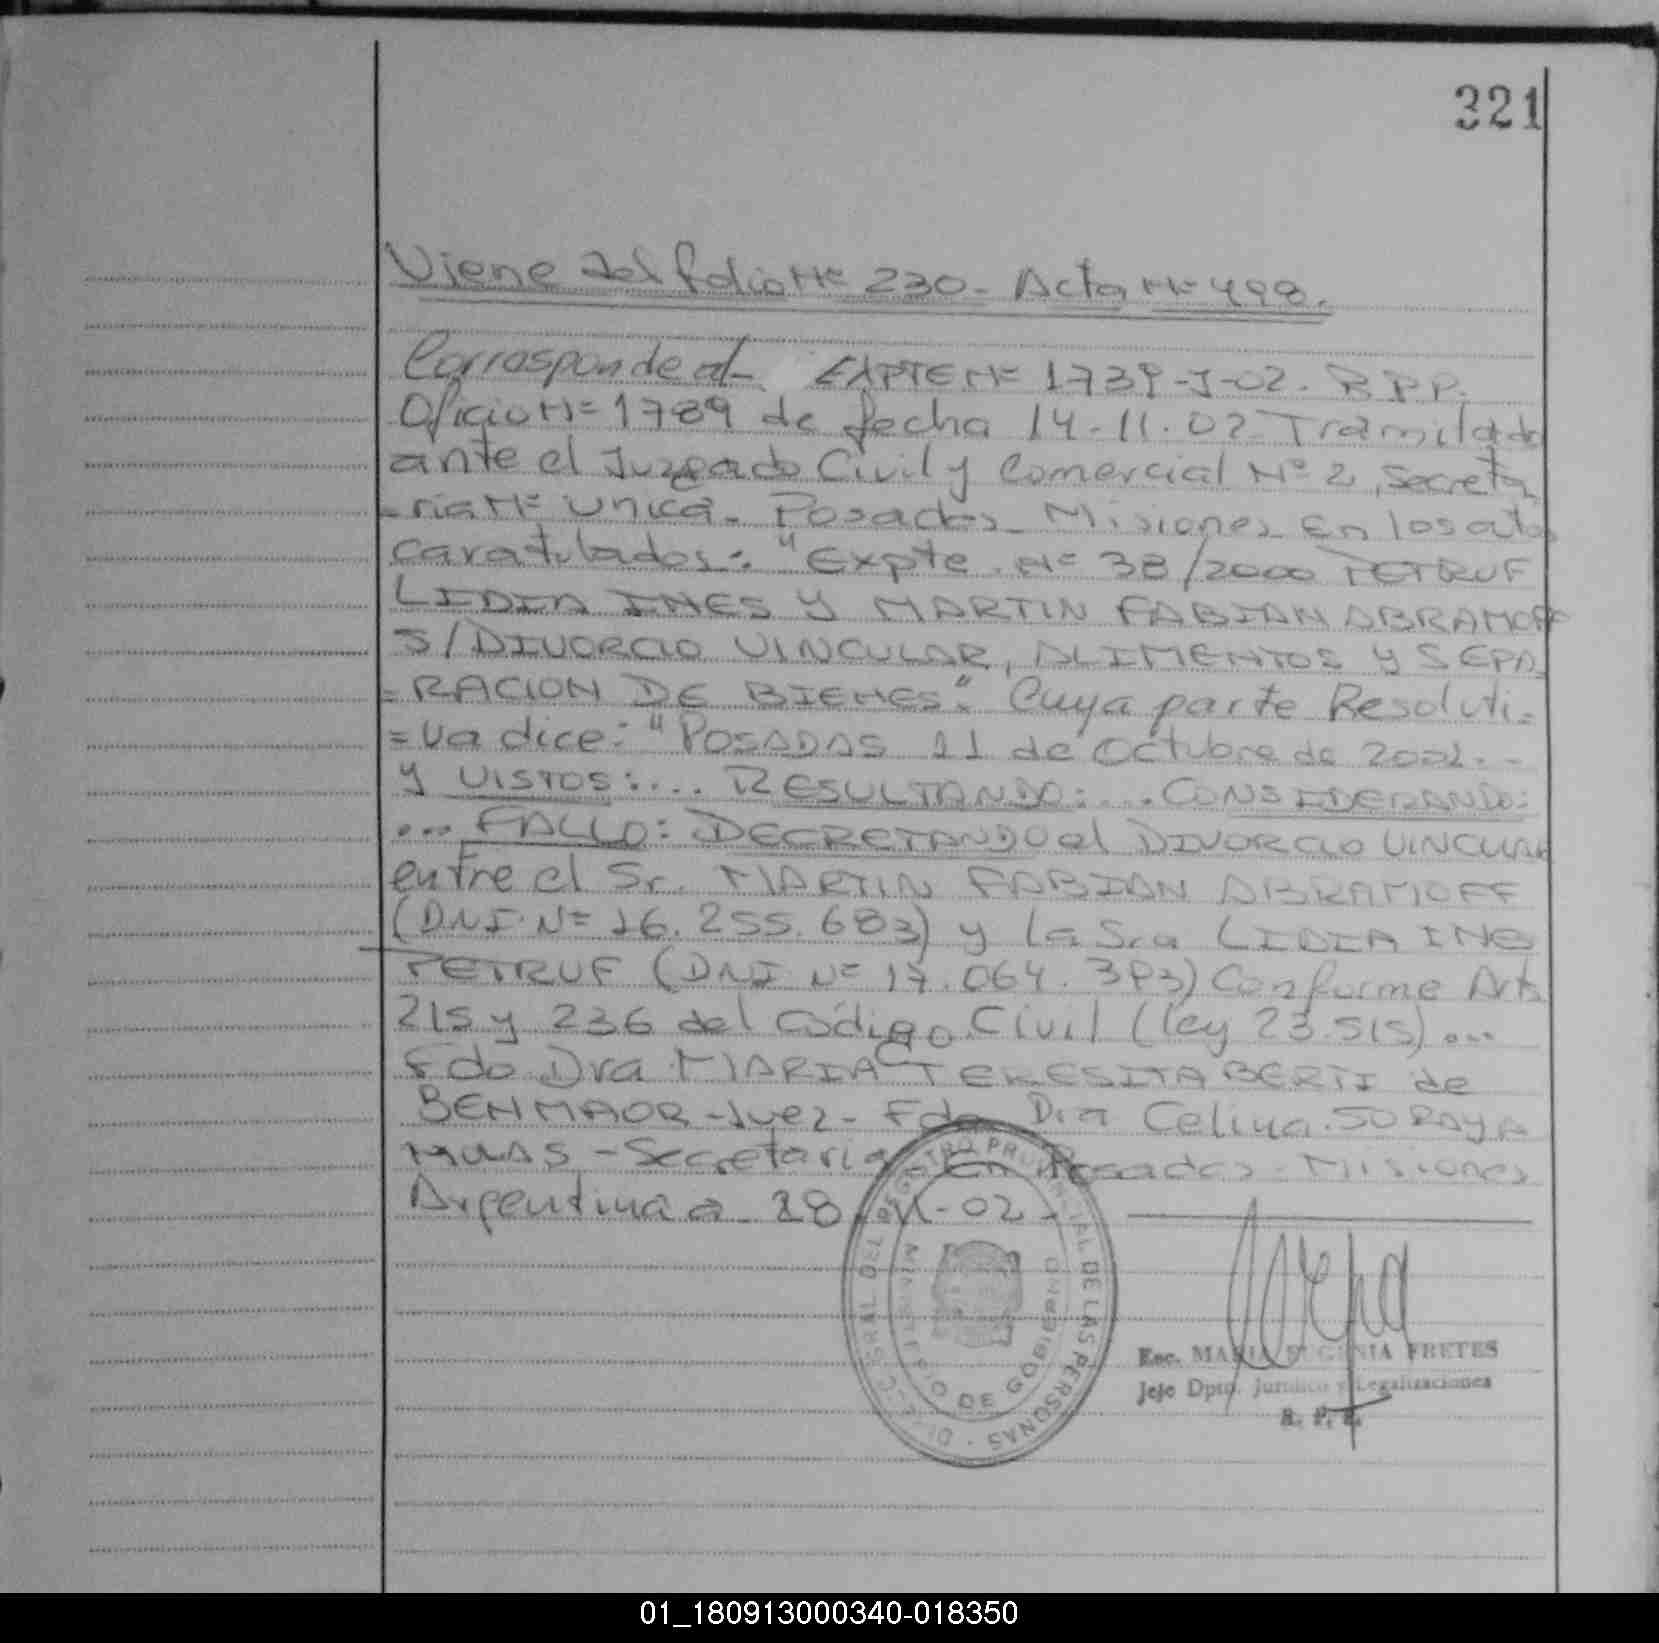 321
Viene del folio Nº 230 - Acta Nº 498.
Corresponde al EXPTE Nº 1739-J-02. R.P.P.
Oficio Nº 1789 de fecha 14-11-02 Tramitado
ante el Juzgado Civil y Comercial Nº 2, Secreta
-ria Nº Unica - Posadas - Misiones En los autos
caratulados: "Expte. Nº 38/2000 PETRUF
LIDIA INES Y MARTIN FABIAN ABRAMOFF
S/DIVORCIO VINCULAR, ALIMENTOS Y SEPA
=RACION DE BIENES". Cuya parte Resoluti-
=va dice: "POSADAS 11 de Octubre de 2002. -
Y VISTOS:... RESULTANDO:... CONSIDERANDO:
... FALLO: DECRETANDO el DIVORCIO VINCULAR
entre el Sr. MARTIN FABIAN ABRAMOFF
(DNI Nº 16.255.683) y la Sra LIDIA INES
PETRUF (DNI Nº 17.064.393) Conforme Arts
215 y 236 del Código Civil (ley 23.515)...
Fdo Dra MARIA TERESITA BERTI de
BENMAOR - Juez - Fdo Dra Celina SORAYA
- Secretaria En Posadas - Misiones
Argentina a 28-11-02 -
DEL REGISTRO PROVINCIAL DE LAS PERSONAS
MINISTERIO DE GOBIERNO
Esc. MARIA EUGENIA FRETES
Jefe Dpto. Jurídico y Legalizaciones
R. P. P.
01_180913000340-018350